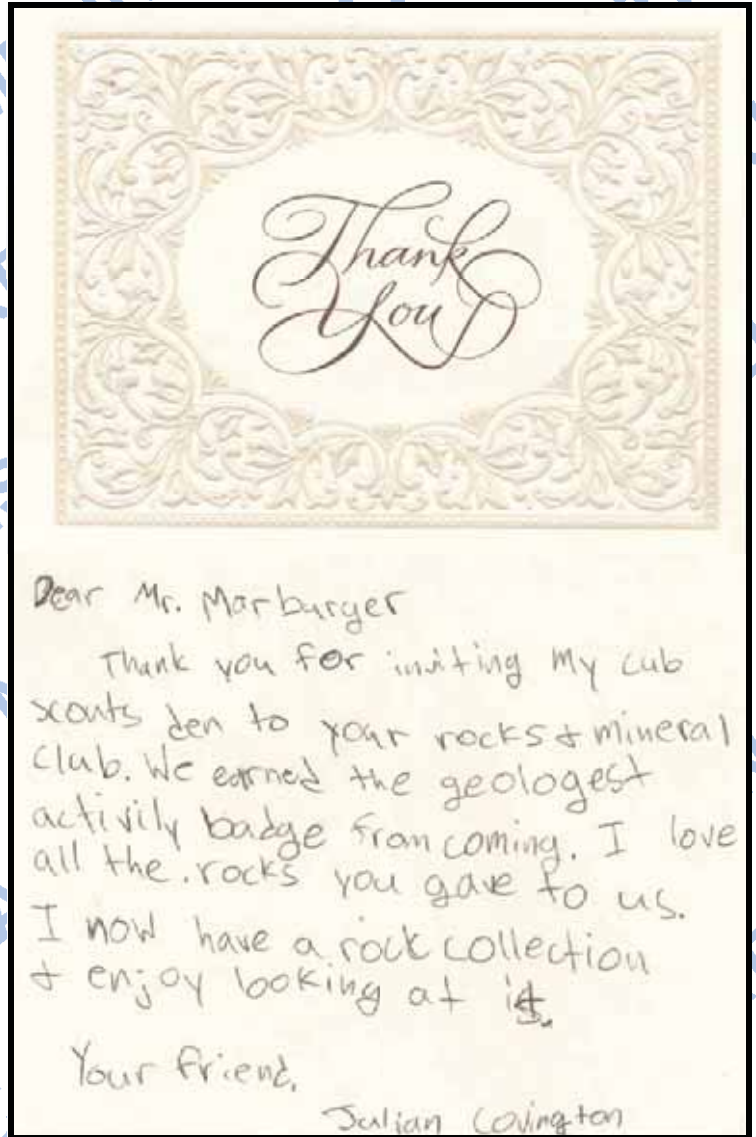 Thank
You
Dear Mr. Marburger
Thank you for inviting my cub
scouts den to your rocks & mineral
club. We earned the geologest
activily badge from coming. I love
all the rocks you gave to us.
I now have a rock collection
& enjoy looking at it.
Your friend,
Julian Covington